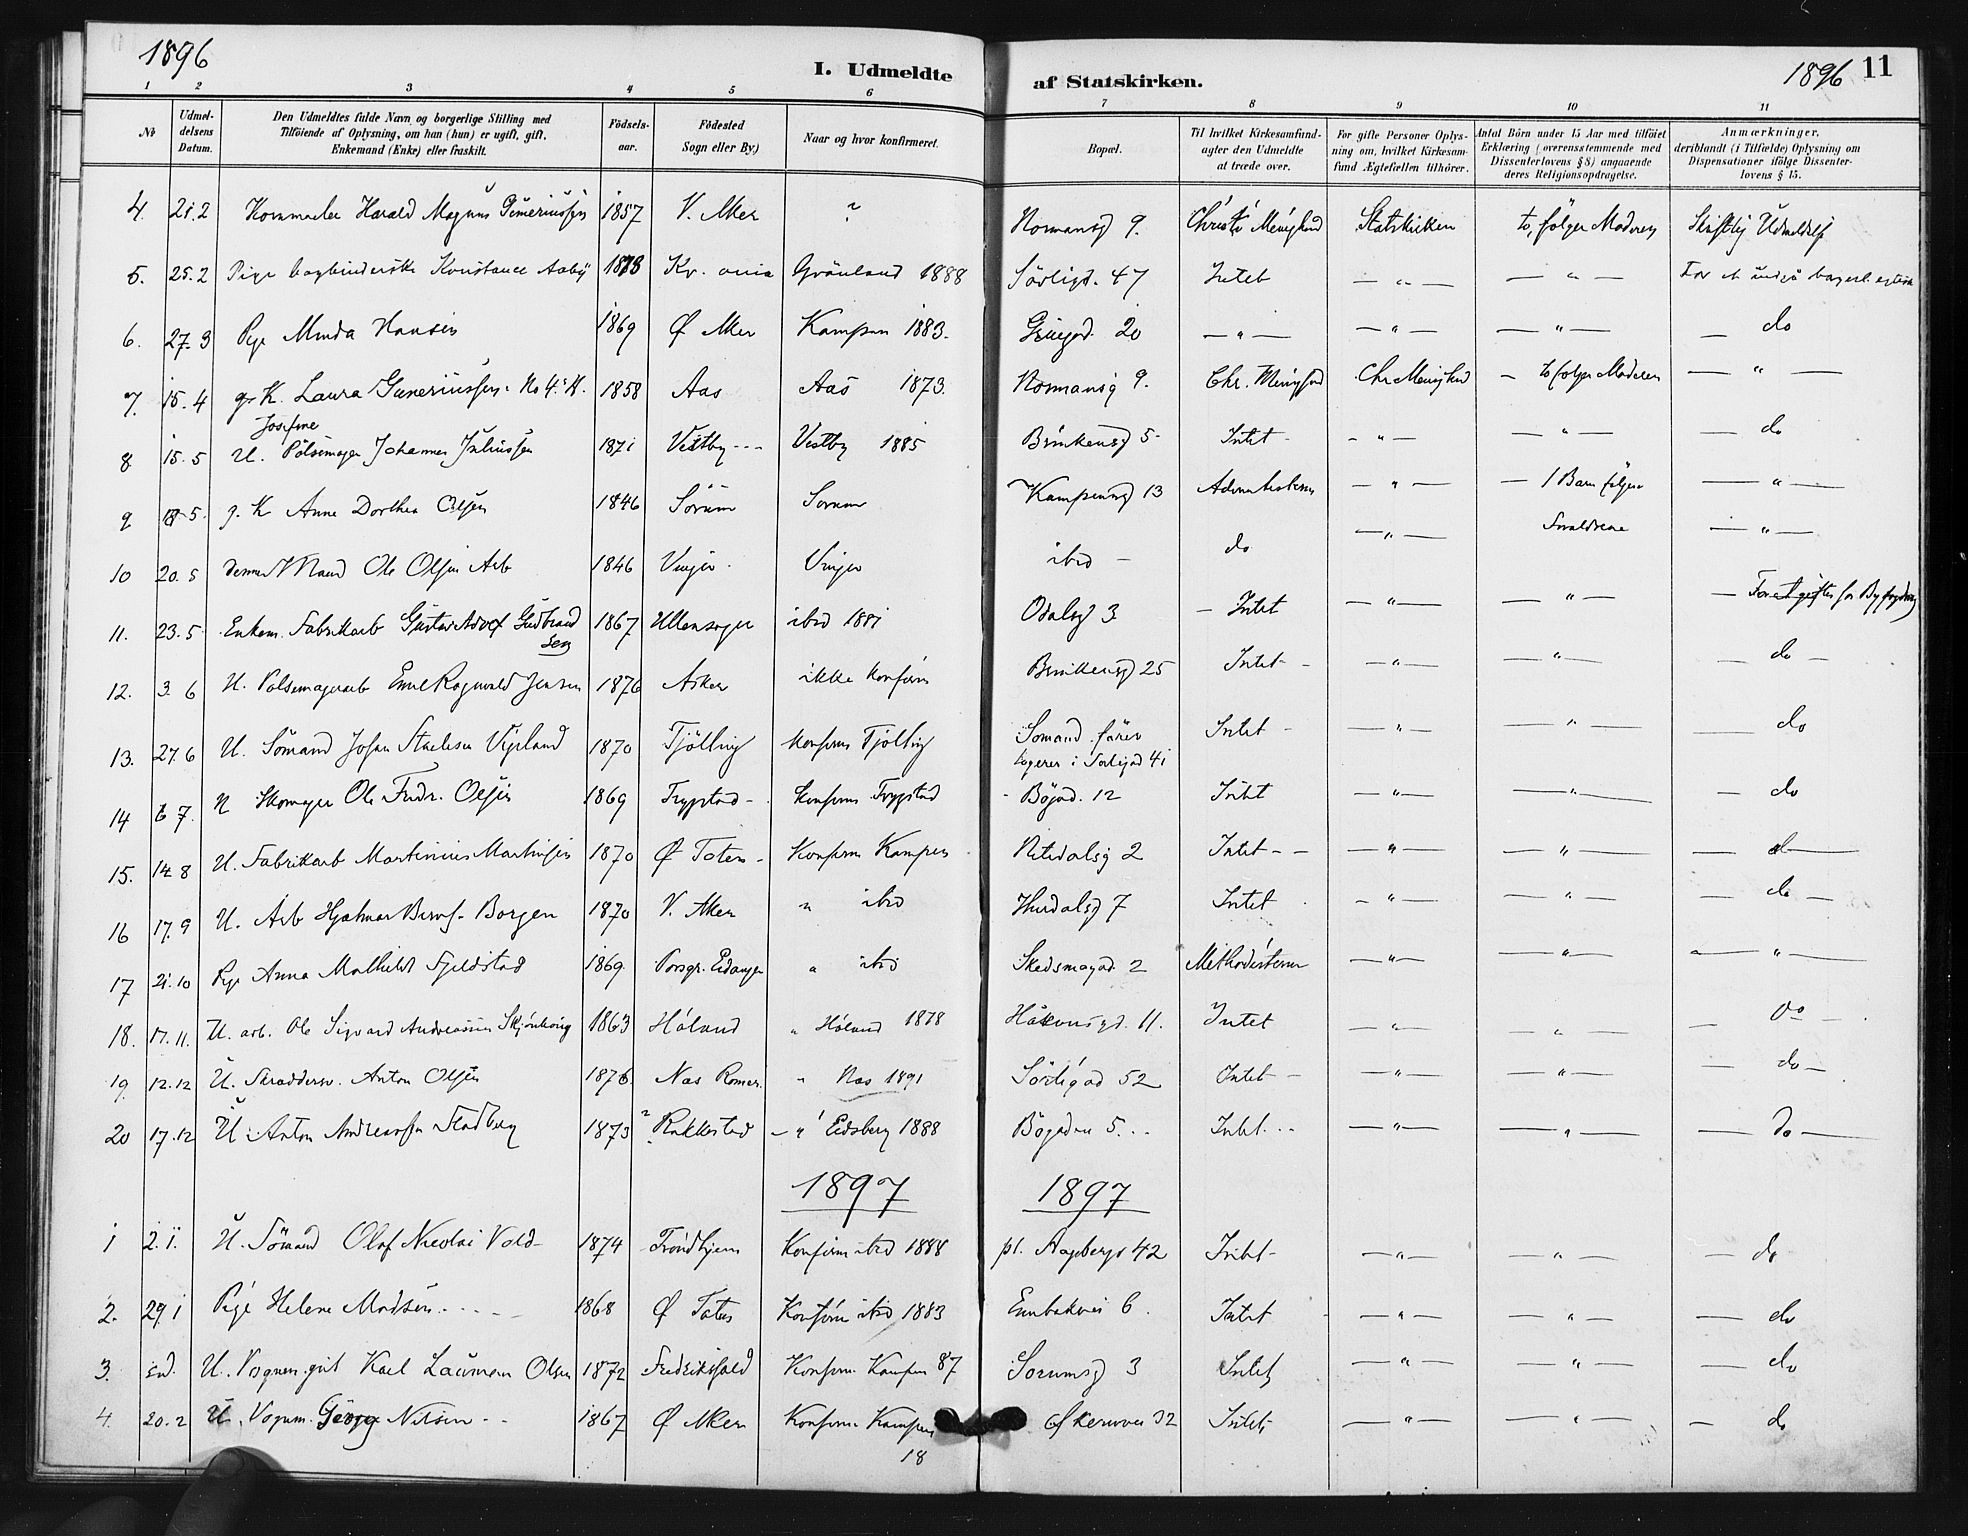 1896
I. Udmeldte af Statskirken.
1896 11
1 2 3 4 5 6 7 8 9 10 11
No
Udmeldelsens Datum.
Den Udmeldtes fulde Navn og borgerlige Stilling med
Tilföiende af Oplysning, om han (hun) er ugift, gift,
Enkemand (Enke) eller fraskilt.
Födselsaar.
Födested
Sogn eller By.)
Naar og hvor konfirmeret.
Bopæl.
Til hvilket Kirkesamfund agter den Udmeldte at træde over.
For gifte Personer Oplysning om, hvilket Kirkesamfund Ægtefællen tilhörer.
Antal Börn under 15 Aar med tilföiet
Erklæring (overensstemmende med
Dissenterlovens § 8) angaaende
deres Religionsopdragelse.
Anmærkninger,
deriblandt (i Tilfælde) Oplysning om
Dispensationer ifölge Dissenterlovens § 15.
4. 21.2 Harald Magnus 1857 V. Aker ? Normansg 9. Statskirken to, følger Moderen Skriftlig Udmeldelse
5. 25.2 Pige Konstance Aaby 1873 Kr.ania Grönland 1888 Sörligt. 47 Intet — " — — " —
6. 27.3 Pige Minda Hansen 1869 Ø Aker Kampen 1883. 20 — " — — " — — " — — do
7. 15.4 g. K. Laura Guneriussen No 4. 1858 Aas Aas 1873. Normansg 9. Chr. Menighed Chr Menighed — to følger Moderen — " —
Josefine
8 15.5 U. Pölsemager Johannes Juliussen 1871 Vestby --- Vestby 1885 Brinkensg 5 Intet - — " — — " — — do
9 5. g. K Anne Dorthea Olsen 1846 Sörum Sorum Kampensg 13 Adventisterne — " — — 1 Barn følger — " —
Foraldrene
10 20.5 Mand Ole Olsen Arb 1846 Vinger Vinger ibid — do — " — — " —
11. 23.5 Enkem. Fabrikarb Gustav Adolf Gudbrandsen 1867 Ullensager ibid 1881 Odalsg 3 — Intet — " — — " —
12. 3.6 U. Polsemagerarb Emil Ragnvald Jensen 1876 Asker ikke konfirm Brinkensg 25 Intet - — " — — " — — do —
13. 27.6 U. Sömand Johan Vipland 1870 Tjölling konfirm Tjolling Somand farer Intet - — " — — " — — do
logerer i 41
14 6 7. U Skomager Ole Fredr. Olsen 1869 Trygstad - konfirm Trygstad - Bögad. 12 Intet — " — — " — — do
15. 14 8 U. Fabrikarb Martinius Martinsen 1870 Ø Toten - Konfirm Kampen Nitedalsg 2 Intet - - — " — — " —
16 17.9 U. Arb Hjalmar Borgen 1870 V. Aker " ibid Hurdalsg 7 Intet — " — — " — — do —
17 21.10 Pige Anna Mathilde Fjeldstad 1869 Porsgr. Eidanger " ibid Skedsmogad. 2 Methodisterne — " — — " — — " —
18. 17.11. U. arb. Ole Sigvard Andreassen 1863 Höland " Höland 1878 Håkonsgd. 11. Intet — " — — " — — do —
19 12.12 U. Skradders. Anton Olsen 1876 Nas Romer. " Nas 1891 52 Intet - — " — — " — — do —
20 17.12 U. Anton Andreassen 1873 ? Rakkestad — " Eidsberg 1888 Bögaden 5... Intet... — " — — " — — do —
1897 1897
1 2.1. U. Sömand Olaf Nicolai Vold - 1874 Trondhjem Konfirm ibid 1888 pl. 42 Intet - — " — — " — — do
2. 29 1 Pige Helene Madsen 1868 Ø Toten Konfirm ibid 1883 6. Intet — " — — " — — do
3. U. Karl Olsen 1872 Fredrikshald Konfirm Kampen 87 Sorumsg 3 Intet — " — — " — — do
4. 20.2 U. Georg Nilsen - - 1867 Ø Aker Konfirm Kampen 32 Intet — " — — " — — do
18